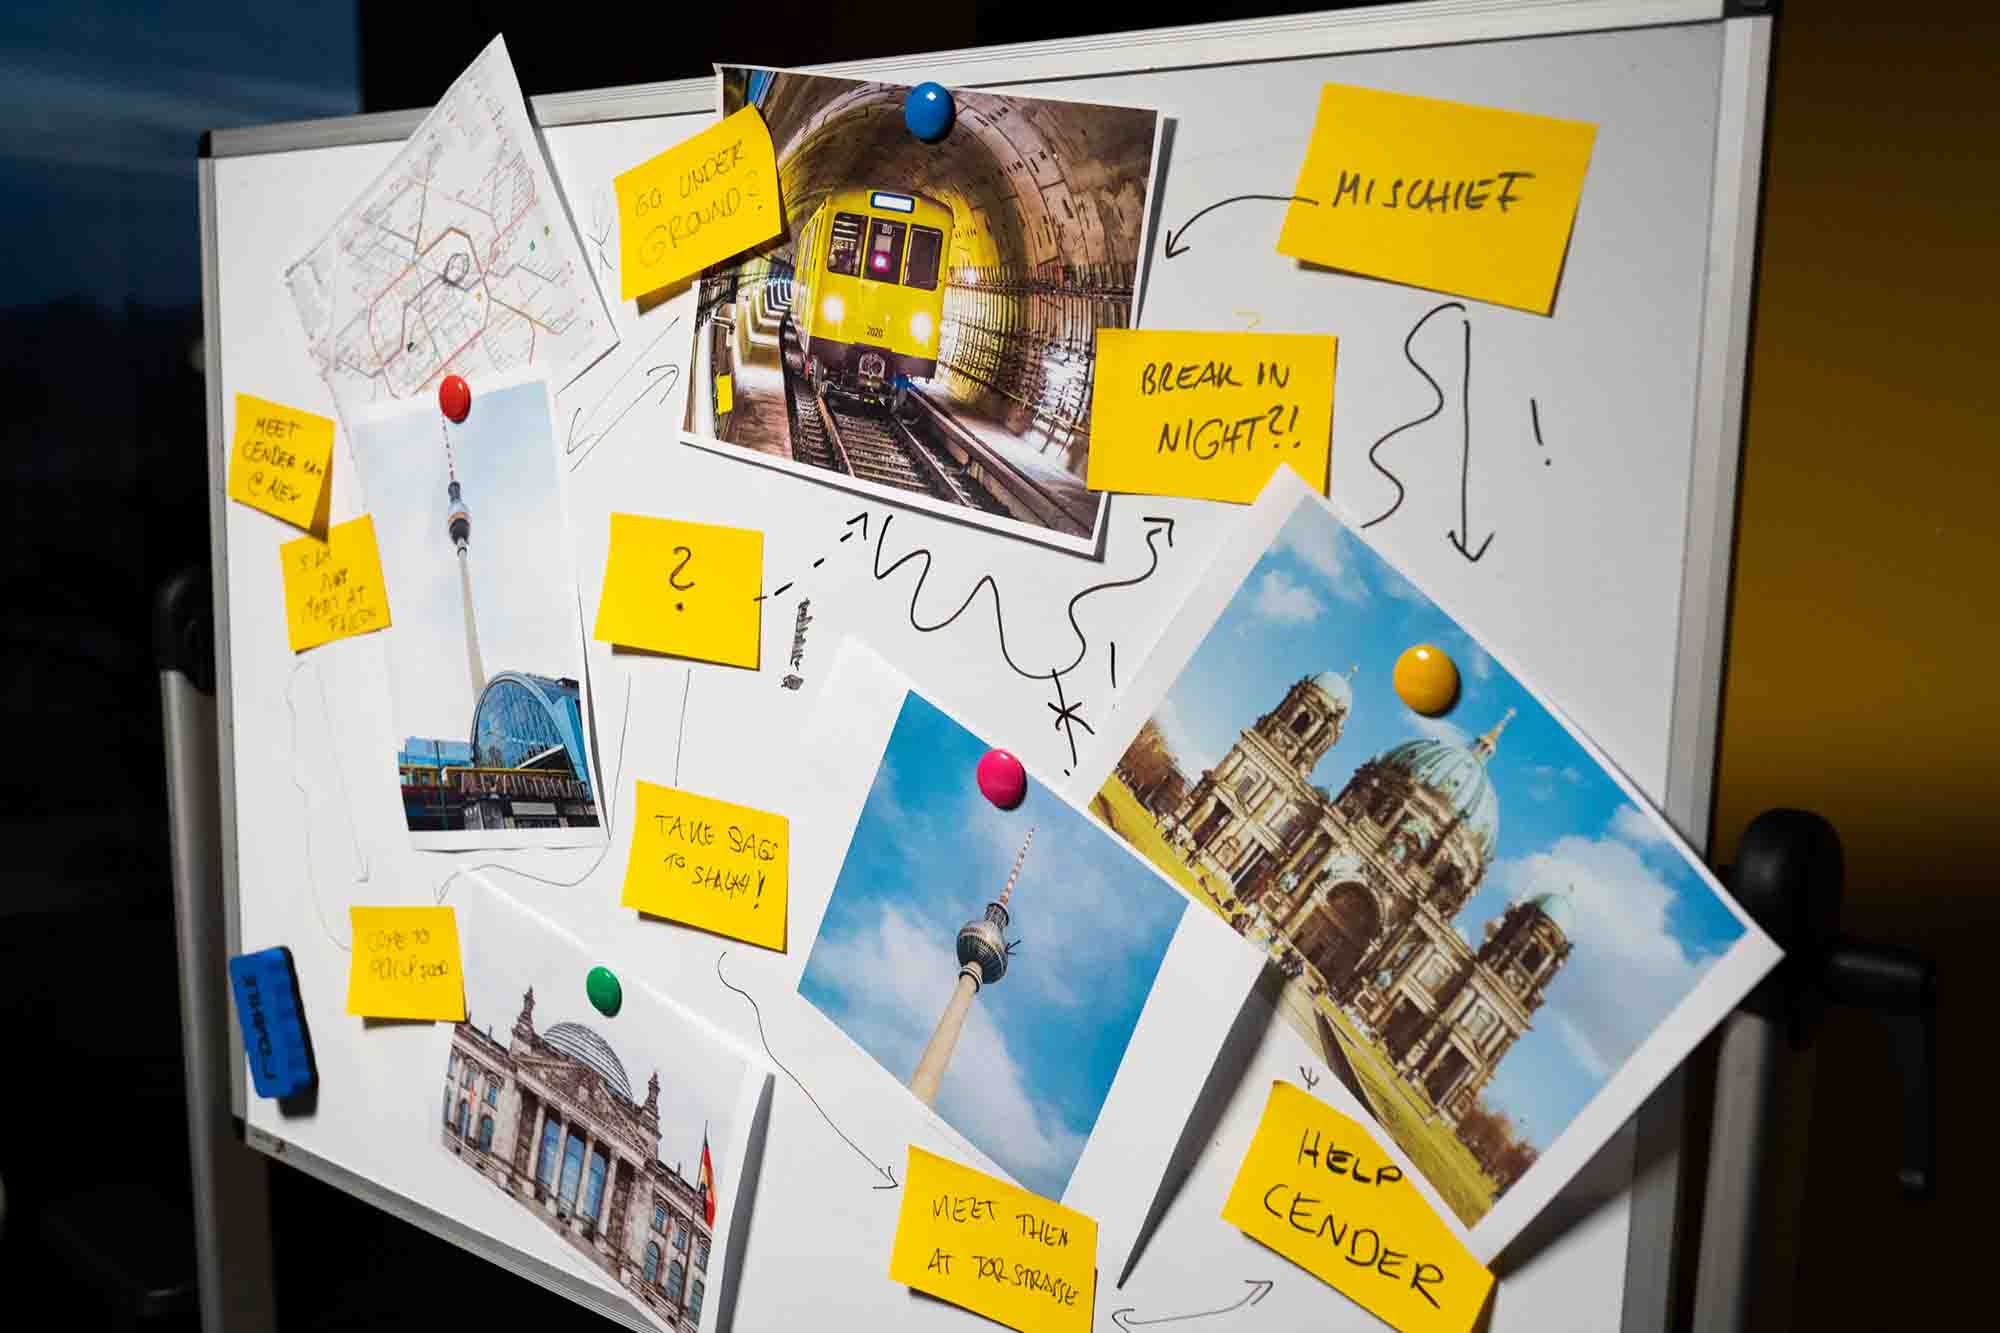 GO UNDER
GROUND?
MISCHIEF
BREAK IN
NIGHT?!
!
2020
MEET
CENDER
@ ALEX
MEET AT
?
!
TAKE BAGS
TO
!
COME TO
MEET THEN
AT TORSTRASSE
HELP
CENDER